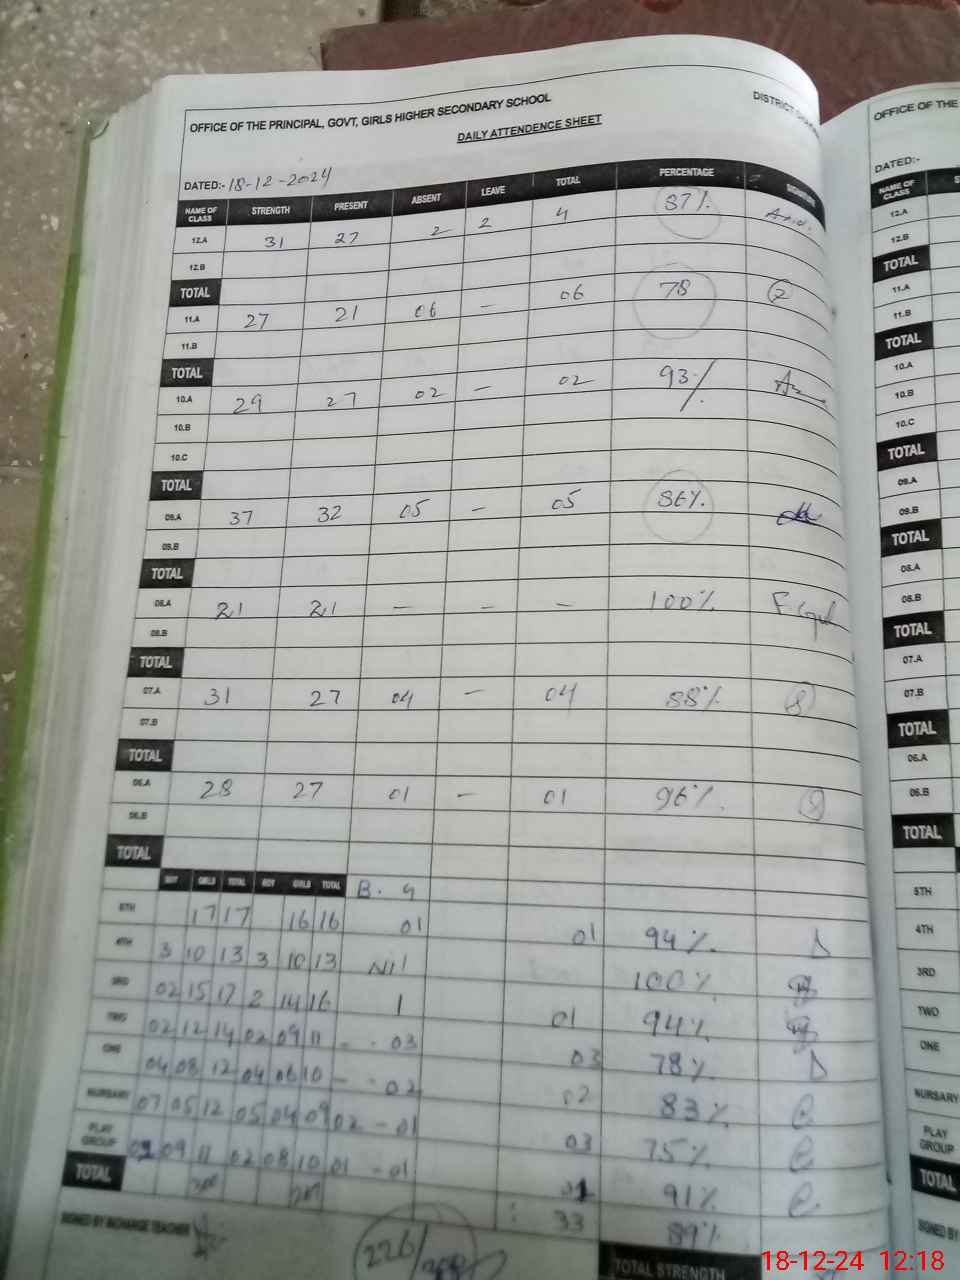 OFFICE OF THE PRINCIPAL, GOVT, GIRLS HIGHER SECONDARY SCHOOL
DAILY ATTENDENCE SHEET
DATED:- 18-12-2024
NAME OF CLASS STRENGTH PRESENT ABSENT LEAVE TOTAL PERCENTAGE
12.A 31 27 2 2 4 87%
12.B
TOTAL
11.A 27 21 06 - 06 78
11.B
TOTAL
10.A 29 27 02 - 02 93%
10.B
10.C
TOTAL
09.A 37 32 05 - 05 86%
09.B
TOTAL
08.A 21 21 - - - 100%
08.B
TOTAL
07.A 31 27 04 - 04 88%
07.B
TOTAL
06.A 28 27 01 - 01 96%
06.B
TOTAL
BOY GIRLS TOTAL BOY GIRLS TOTAL B. G
5TH 17 17 16 16 01 01 94%
4TH 3 10 13 3 10 13 Nil 100%
3RD 02 15 17 2 14 16 1 01 94%
TWO 02 12 14 02 09 11 - . 03 03 78%
ONE 04 08 12 04 06 10 - . 02 02 83%
NURSARY 07 05 12 05 04 09 02 - 01 03 75%
PLAY GROUP 09 11 02 08 10 01 - 01 91%
TOTAL 33 89%
SIGNED BY INCHARGE TEACHER
226/
TOTAL STRENGTH
OFFICE OF THE
DATED:-
NAME OF CLASS
12.A
12.B
TOTAL
11.A
11.B
TOTAL
10.A
10.B
10.C
TOTAL
09.A
09.B
TOTAL
08.A
08.B
TOTAL
07.A
07.B
TOTAL
06.A
06.B
TOTAL
5TH
4TH
3RD
TWO
ONE
NURSARY
PLAY GROUP
TOTAL
SIGNED BY
18-12-24 12:18